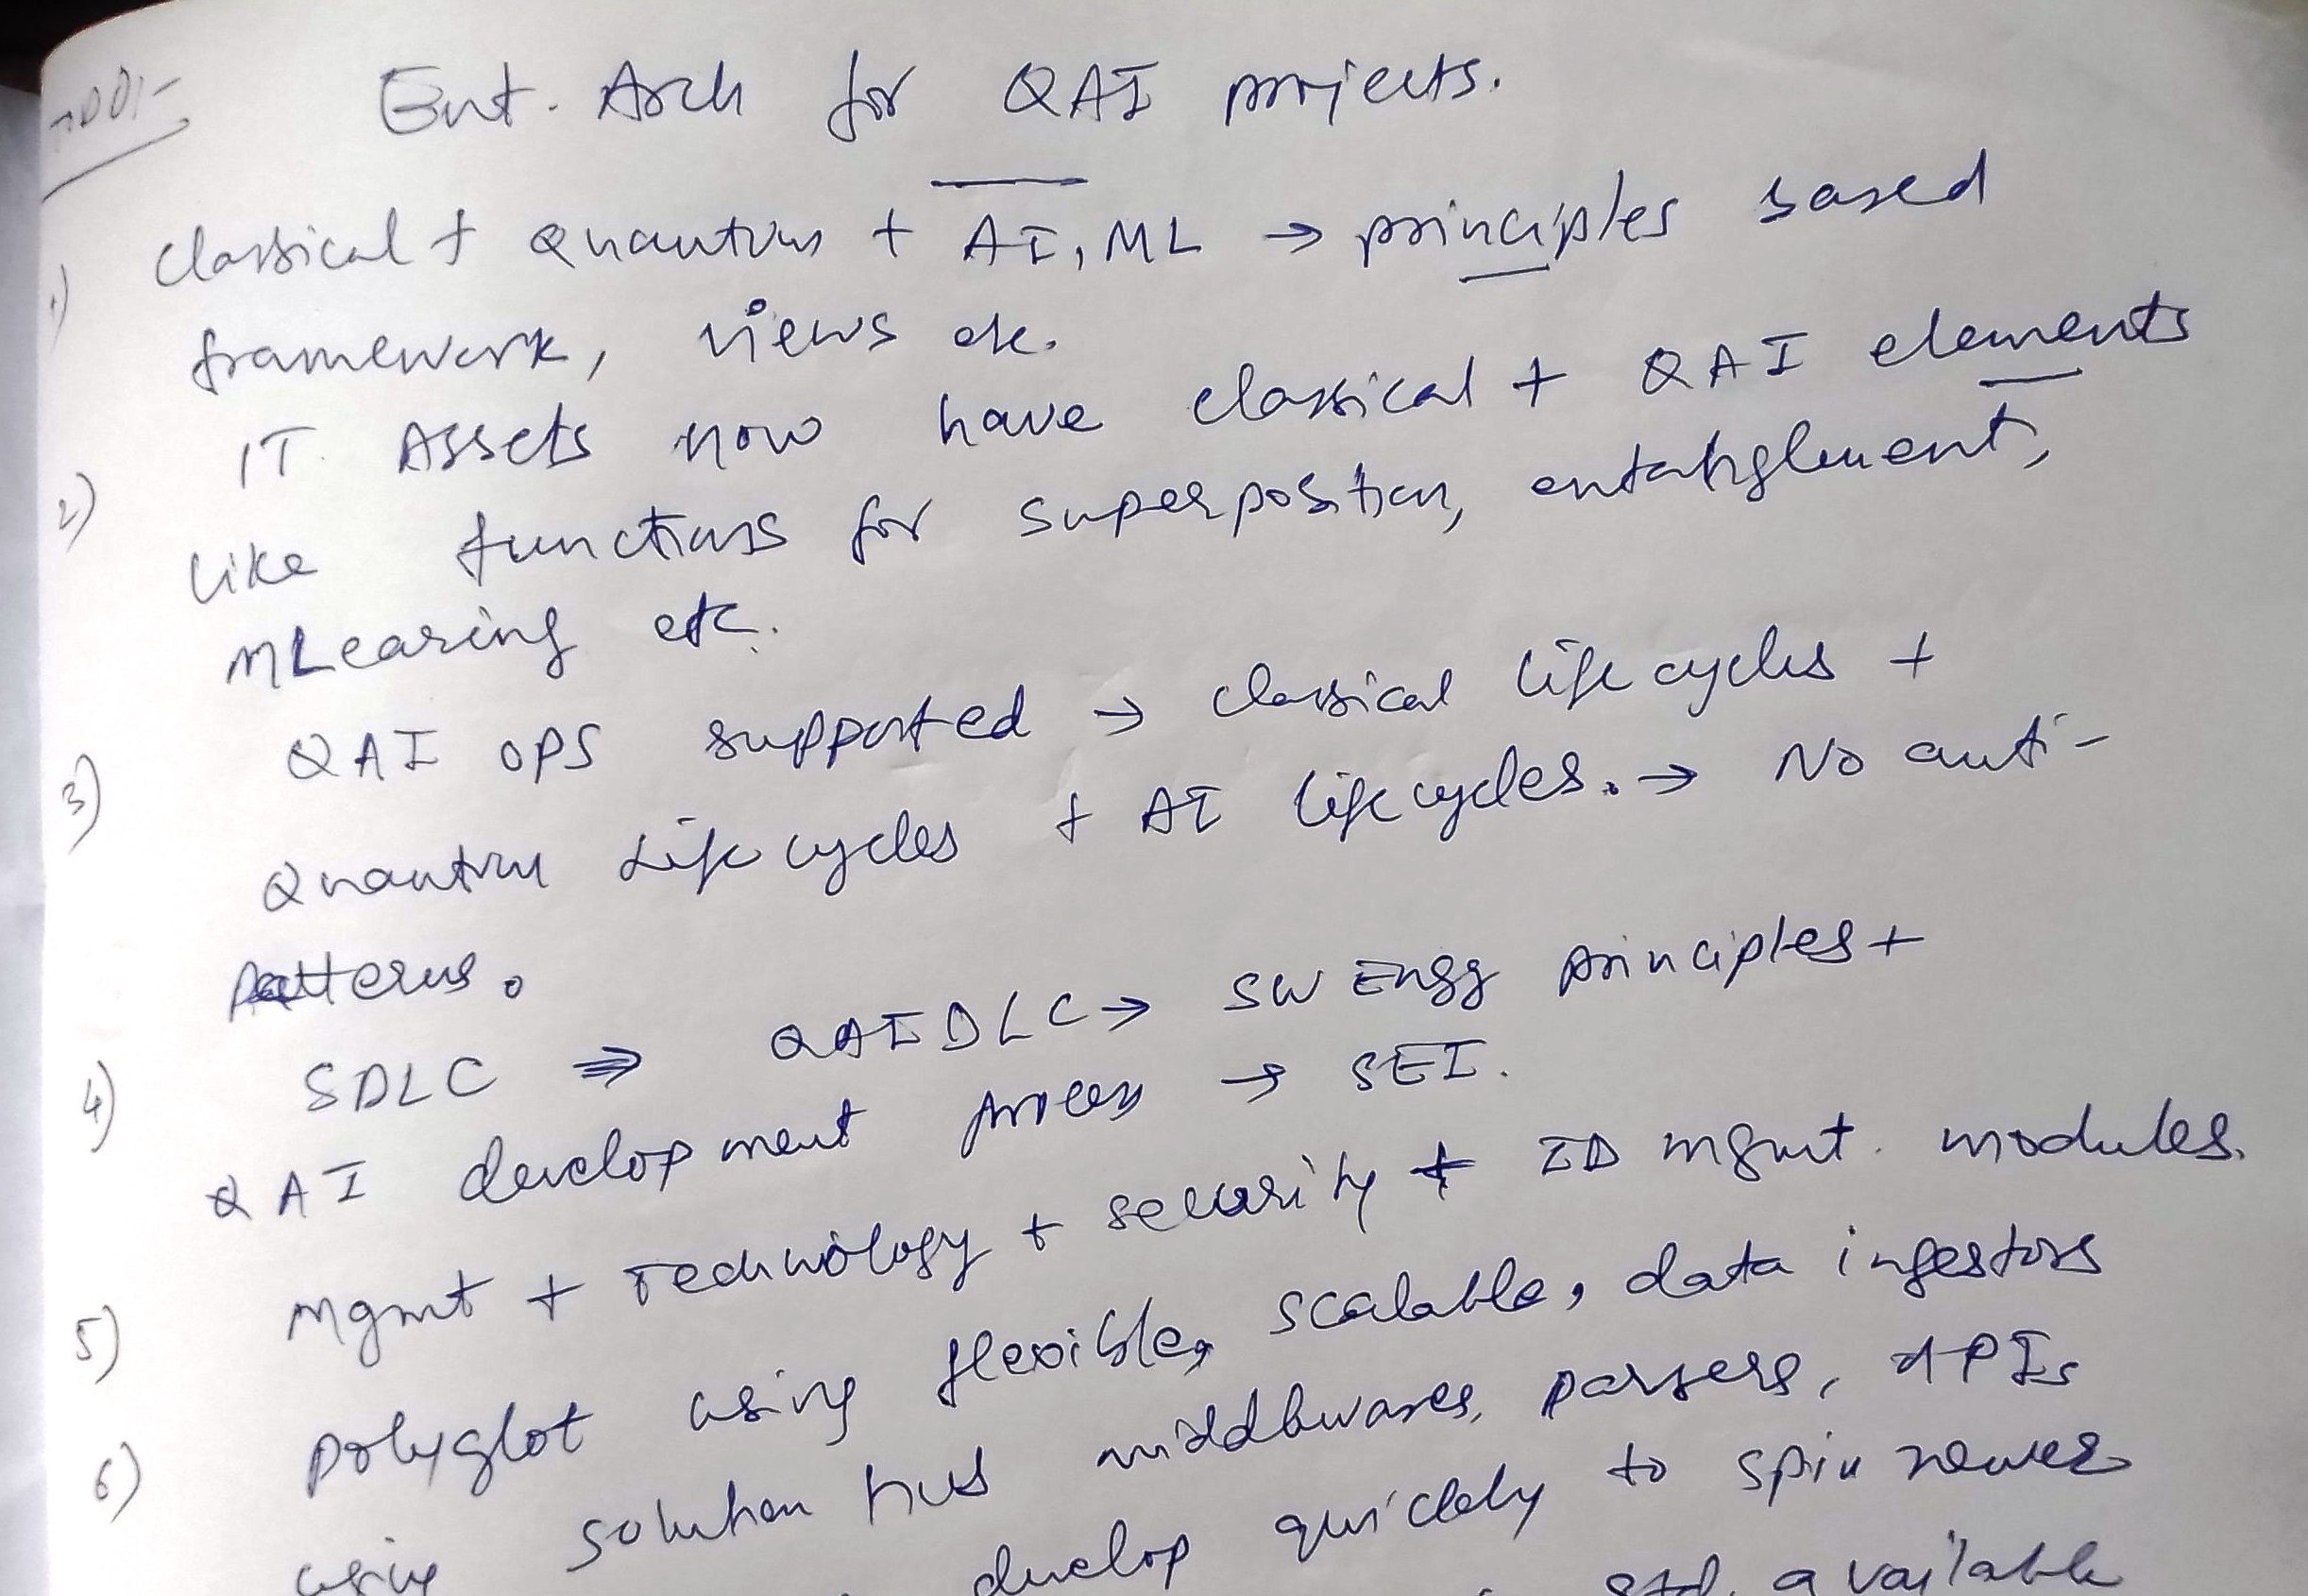 Ent. Arch for QAI projects.
1) Classical + Quantum + AI, ML → principles based
framework, views etc.
2) IT Assets now have classical + QAI elements
like functions for superposition, entanglement,
MLearing etc.
3) QAI OPS supported → classical life cycles +
Quantum Life cycles + AI life cycles. → No anti-
patterns.
4) SDLC ⇒ QAIDLC → SW Engg principles +
QAI development process → SEI.
5) Mgmt + Technology + security + ID mgmt. modules.
6) Polyglot using flexible, scalable, data ingestors
using solution hub middlewares, parsers, APIs
develop quickly to spin newer
std. available